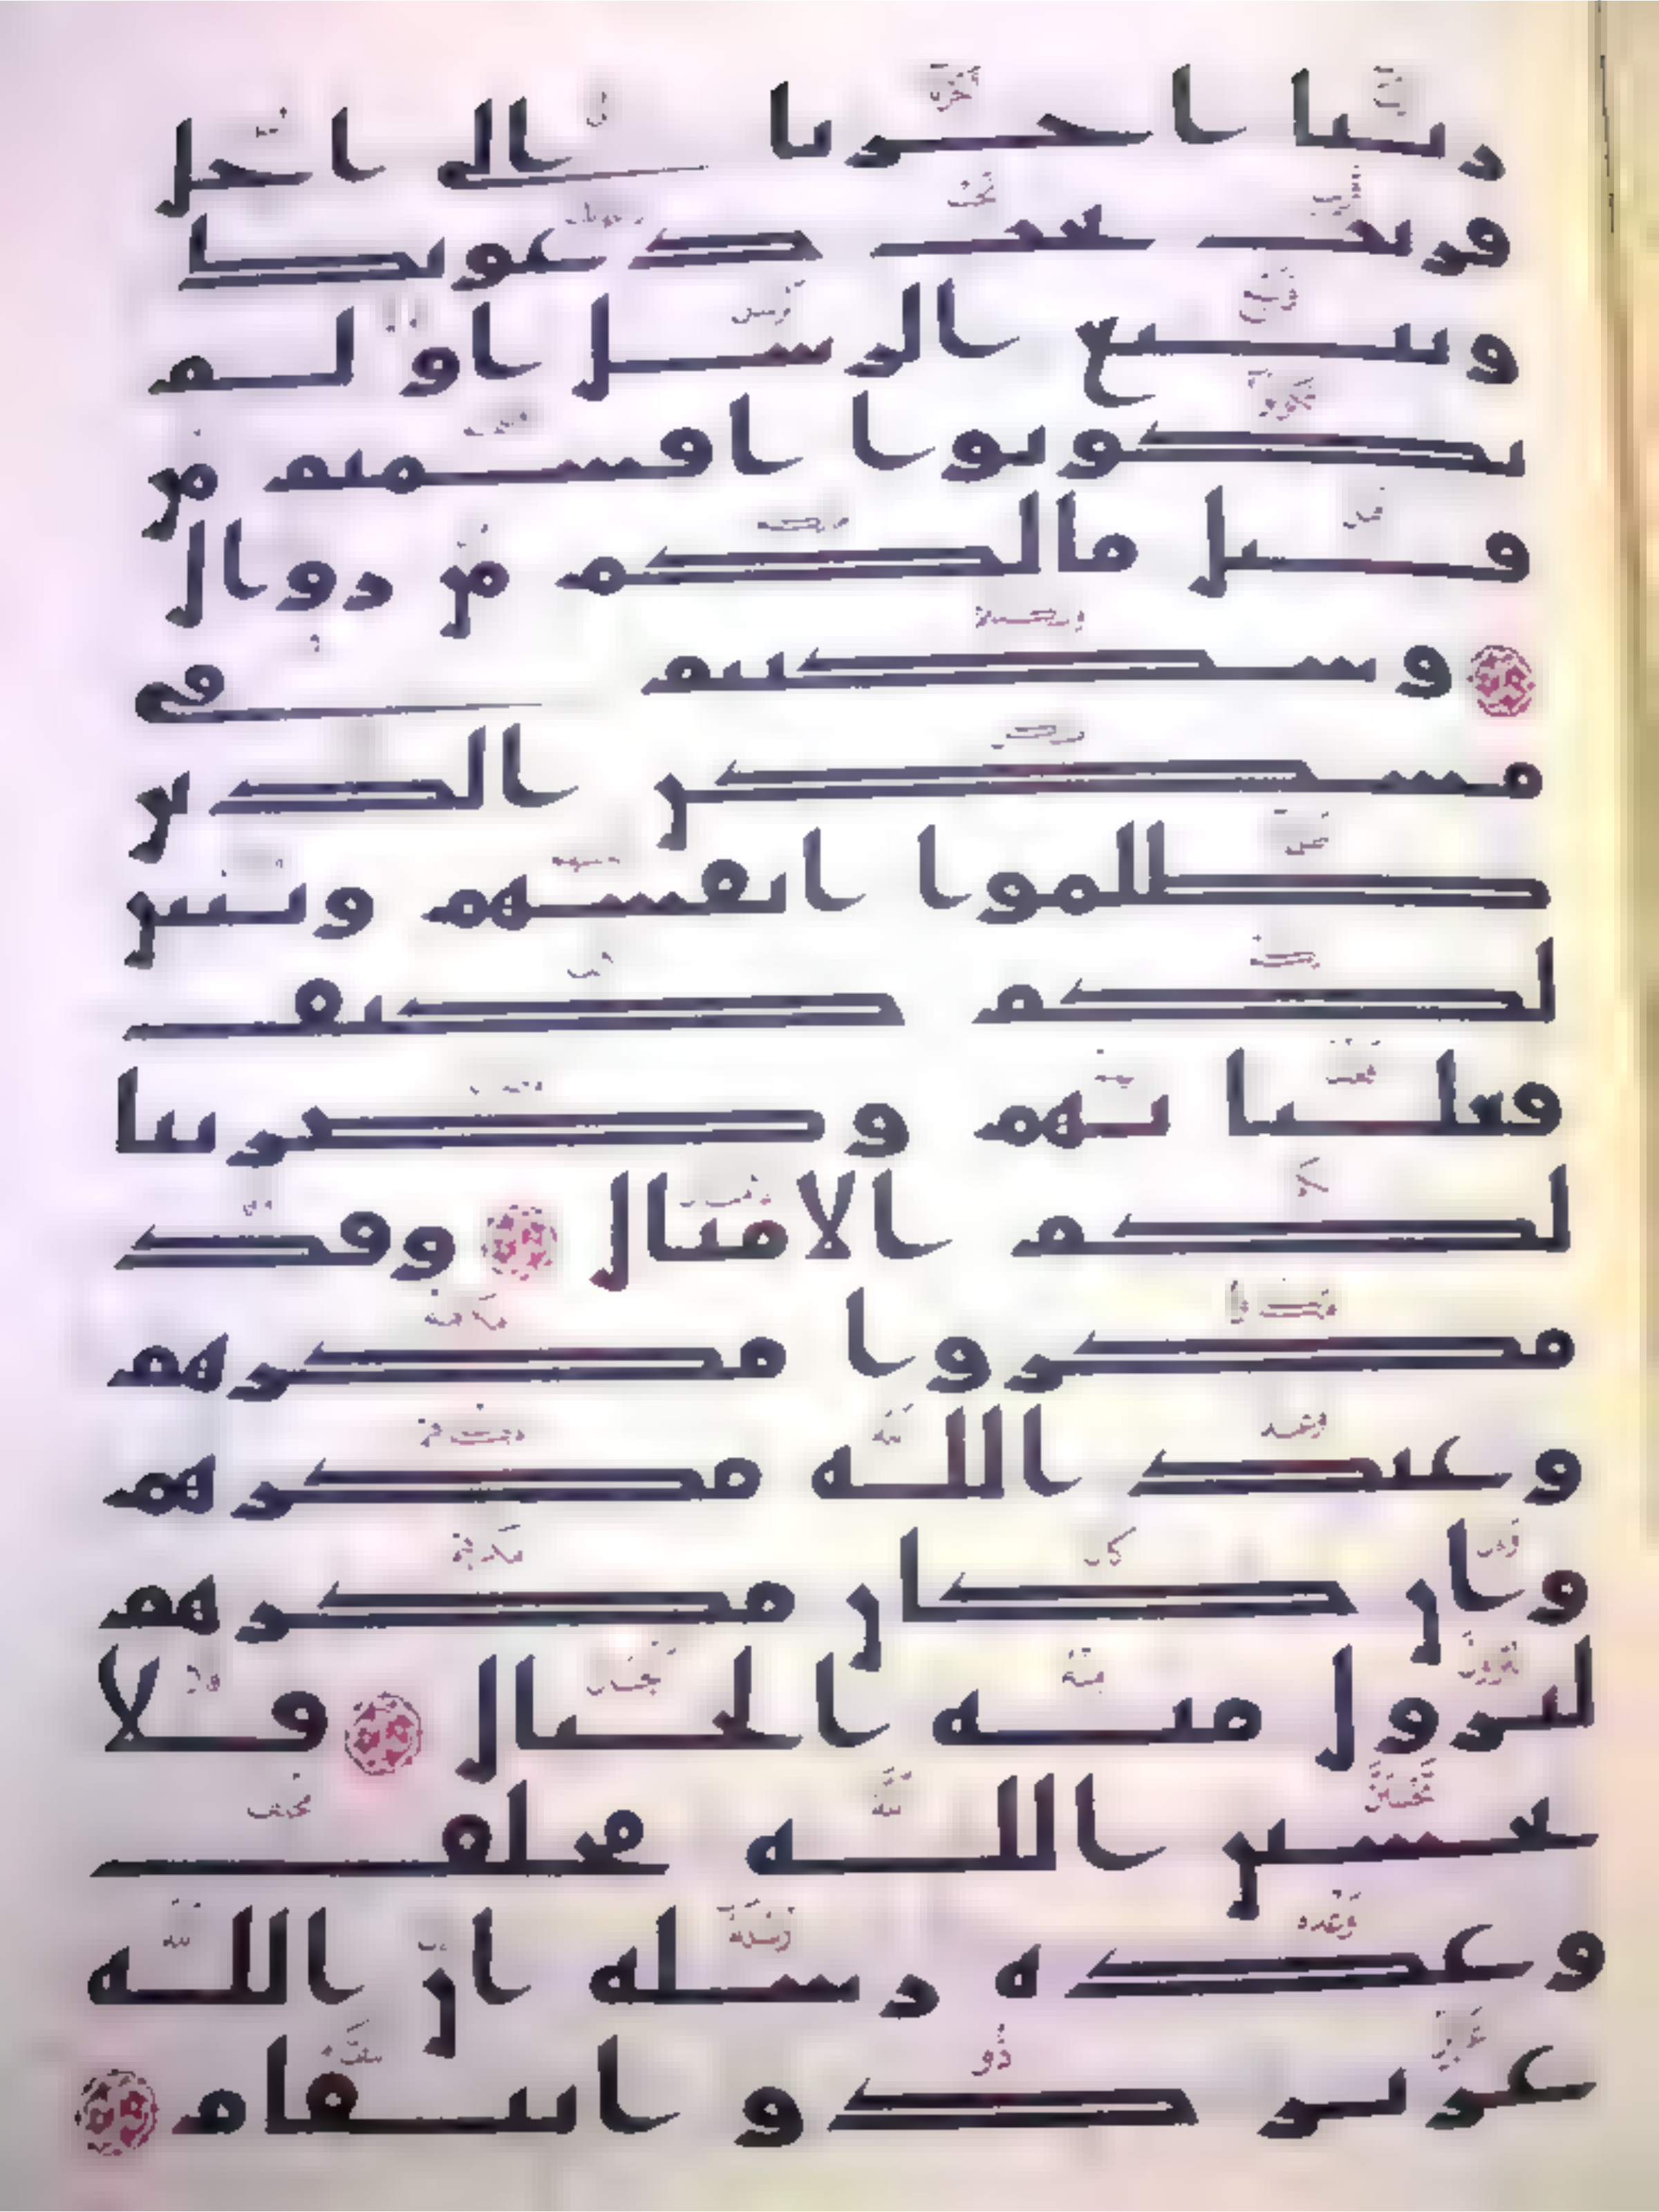 ربنا اخرنا الى اجل
قريب نجب دعوتك
ونتبع الرسل او لم
تكونوا اقسمتم من
قبل مالكم من زوال
وسكنتم في
مسكن الذين
ظلموا انفسهم وتبين
لكم كيف
فعلنا بهم وضربنا
لكم الامثال وقد
مكروا مكرهم
وعند الله مكرهم
وان كان مكرهم
لتزول منه الجبال فلا
تحسبن الله مخلف
وعده رسله ان الله
عزيز ذو انتقام